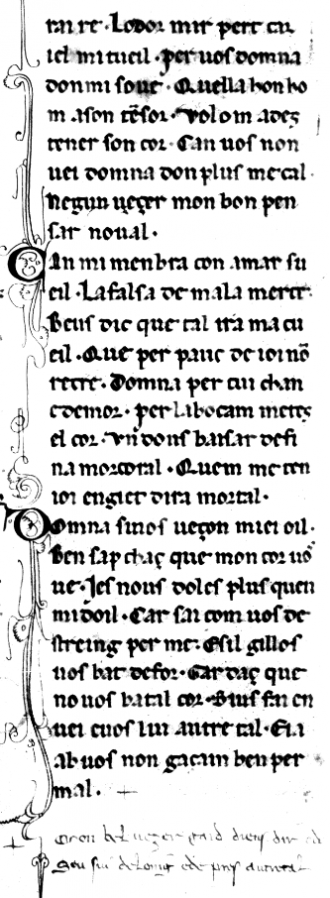 tai re · Lodoz mir pert cu
iel mi tueil · Per uos domna
don mi soue · Quella hon ho
m a son tesor · Volom adeç
tener son cor · Can uos non
uei domna don plus me cal ·
Negun ueçer mon bon pen
sar no ual ·
Can mi menbra con amar su
eil · La falsa de mala merce ·
Beus dic que tal ira ma cu
eil · Que per pauc de ioi nō
recre · Domna per cui chan
e demor · per la bocam metes
el cor · Vn dous baisar de fi
na mor coral · Quem me ten
ioi en giet dira mortal ·
Domna sinos ueçon miei oil ·
Ben sapchaç que mon cor uos
ue · Jes nous doles plus queu
mi doil · Car sai com uos de
streing per me · E sil gillos
uos bat defor · Gardaç que
no uos bata l cor · Sius fai en
uei e uos lui autre tal · E ia
ab uos non gaçain ben per
mal ·